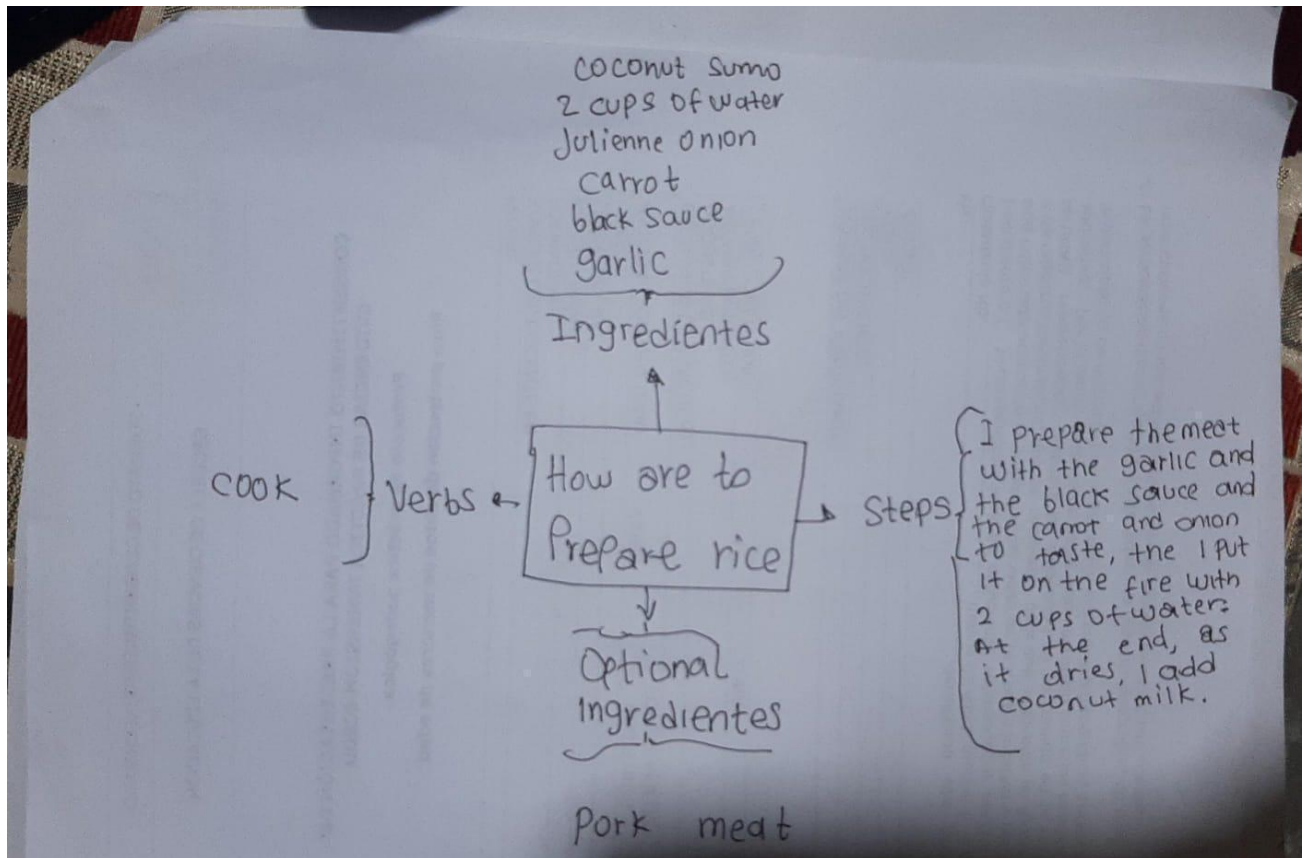 coconut sumo
2 cups of water
Julienne onion
carrot
black sauce
garlic
Ingredientes
How are to
Prepare rice
Verbs
cook
Steps
I prepare the meat
with the garlic and
the black sauce and
the carrot and onion
to taste, the I put
it on the fire with
2 cups of water.
At the end, as
it dries, I add
coconut milk.
Optional
Ingredientes
Pork meat